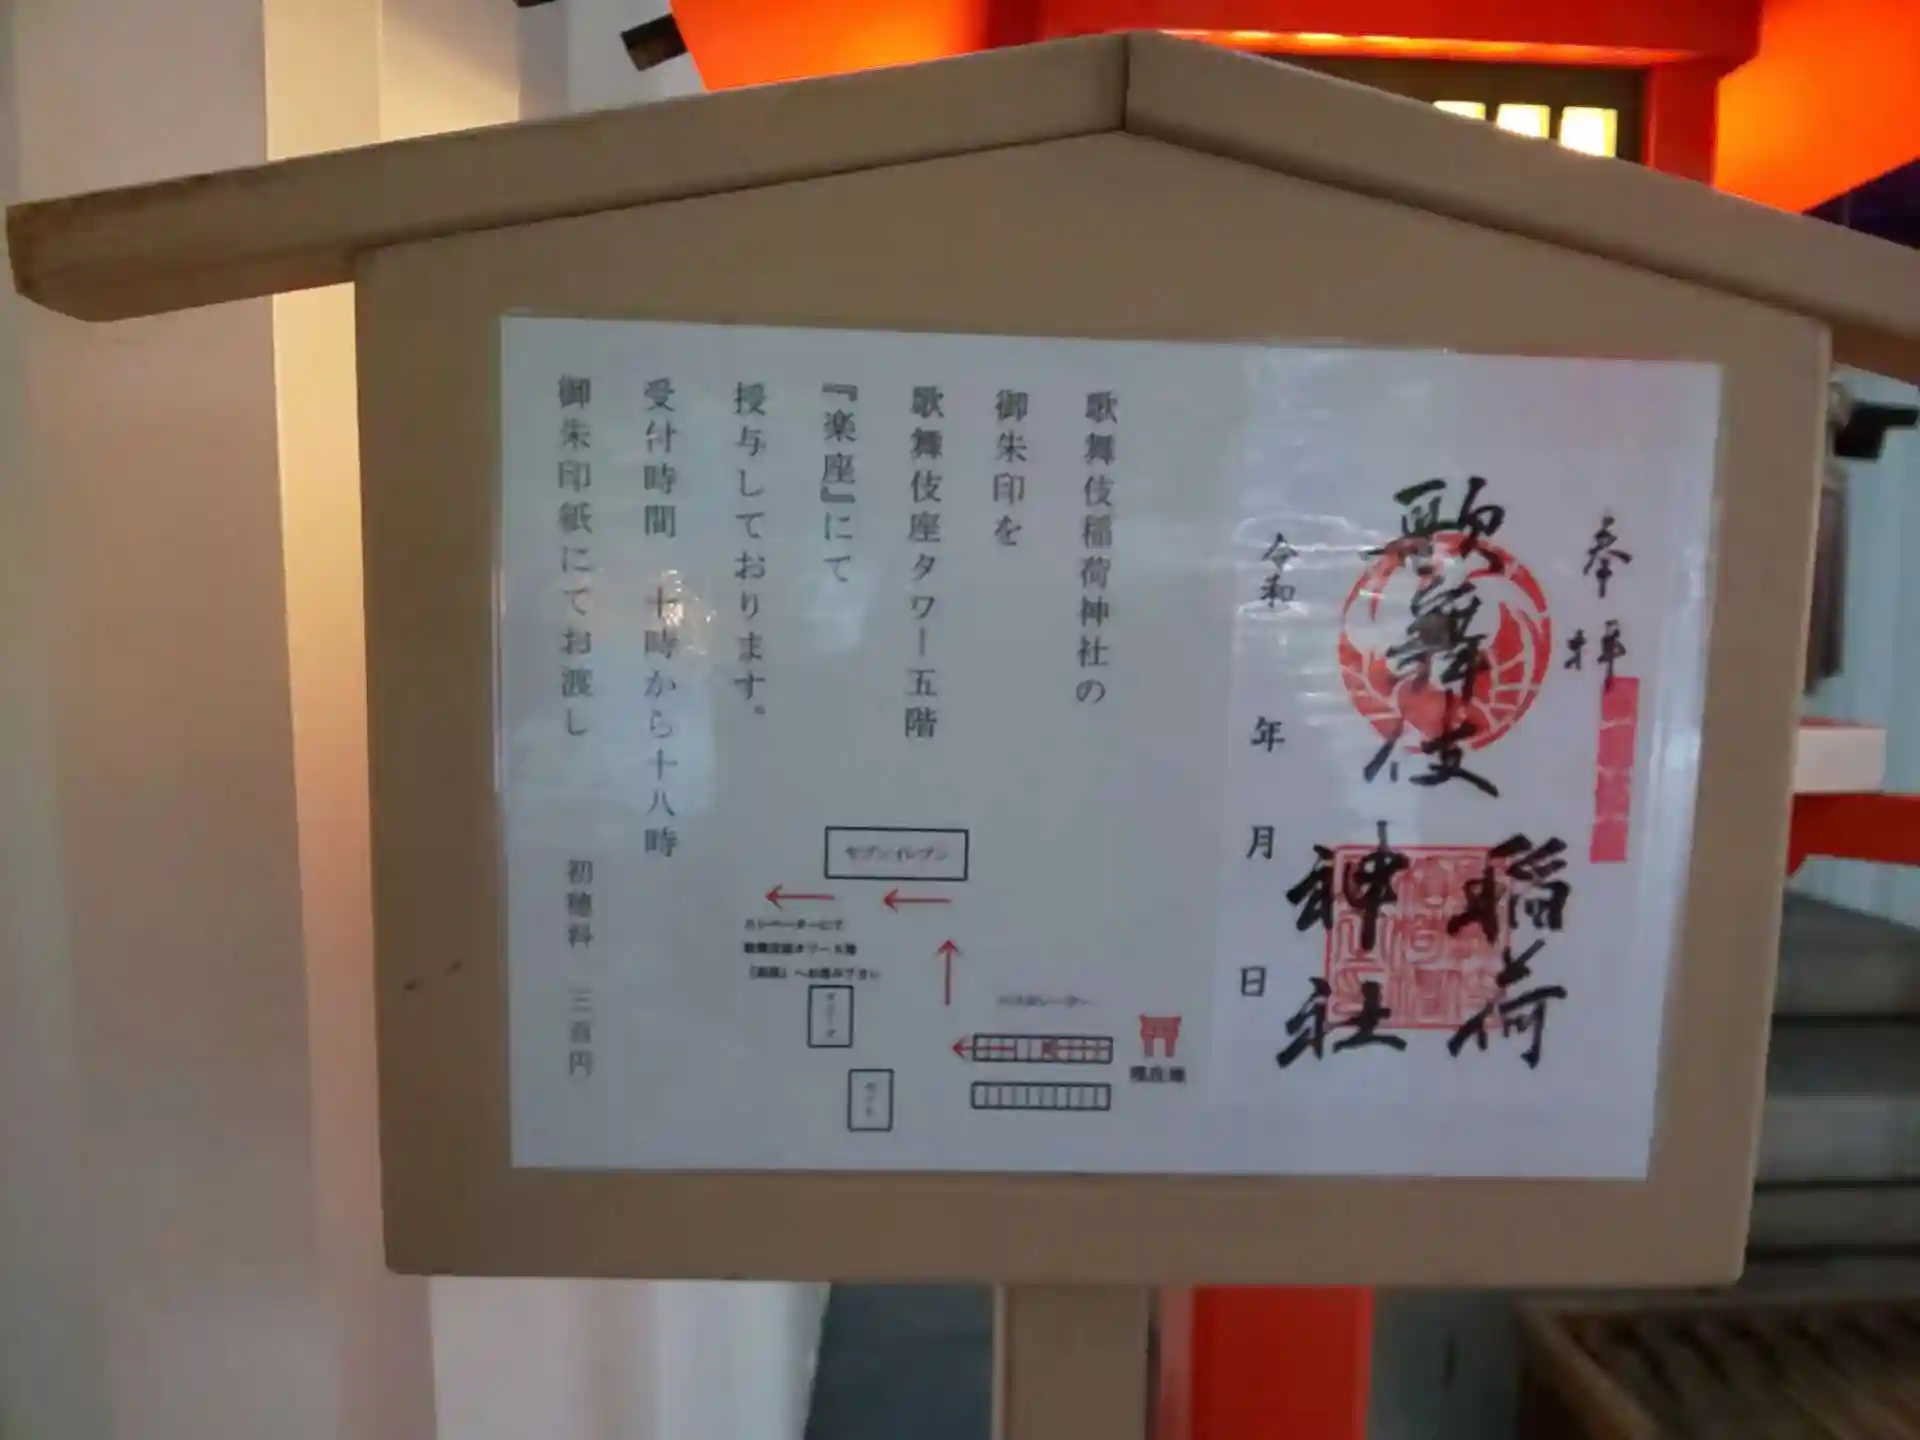 奉拝
歌舞伎
稲荷
神社
令和 年 月 日
歌舞伎稲荷神社の
御朱印を
歌舞伎座タワー五階
『楽座』にて
授与しております。
受付時間 十時から十八時
御朱印紙にてお渡し 初穂料 三百円
セブンイレブン
エレベーターにて
歌舞伎座タワー五階
『楽座』へお進み下さい
エスカレーター
現在地